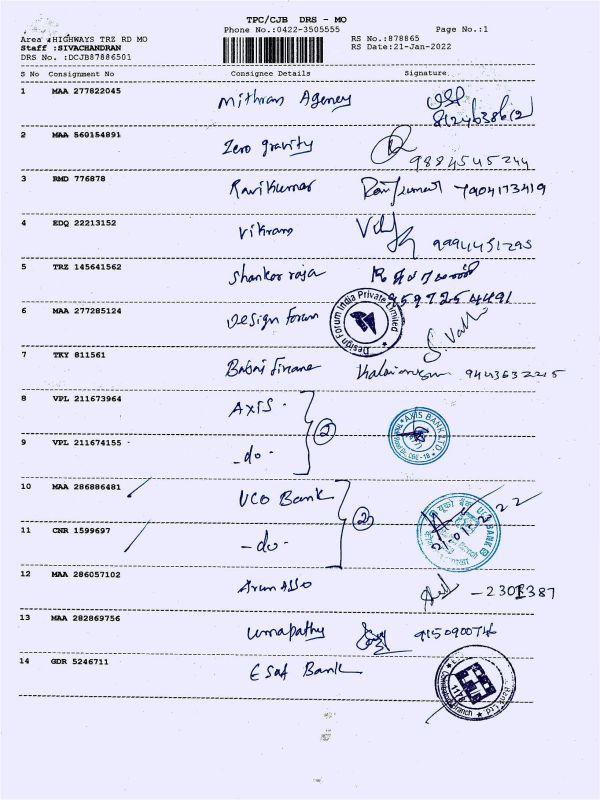 TPC/CJB DRS - MO
Phone No.:0422-3505555 Page No.:1
Area :HIGHWAYS TRZ RD MO RS No.:878865
Staff :SIVACHANDRAN RS Date:21-Jan-2022
DRS No. :DCJB87886501
S No Consignment No Consignee Details Signature
1 MAA 277822045 Mithran Agency
2 MAA 560154891 Zero gravity 9884545244
3 RMD 776878 Ravikumar 7904173419
4 EDQ 22213152 Vikram 9994451295
5 TRZ 145641562 Shanker raja 9597254491
6 MAA 277285124 Design Forum Design Forum India Private Limited
7 TKY 811561 9443632215
8 VPL 211673964 AXIS AXIS BANK LTD
2
9 VPL 211674155 -do-
10 MAA 286886481 UCO Bank UCO BANK
2
11 CNR 1599697 -do-
12 MAA 286057102 Arun Asso
13 MAA 282869756 Umapathy
14 GDR 5246711 ESAF Bank